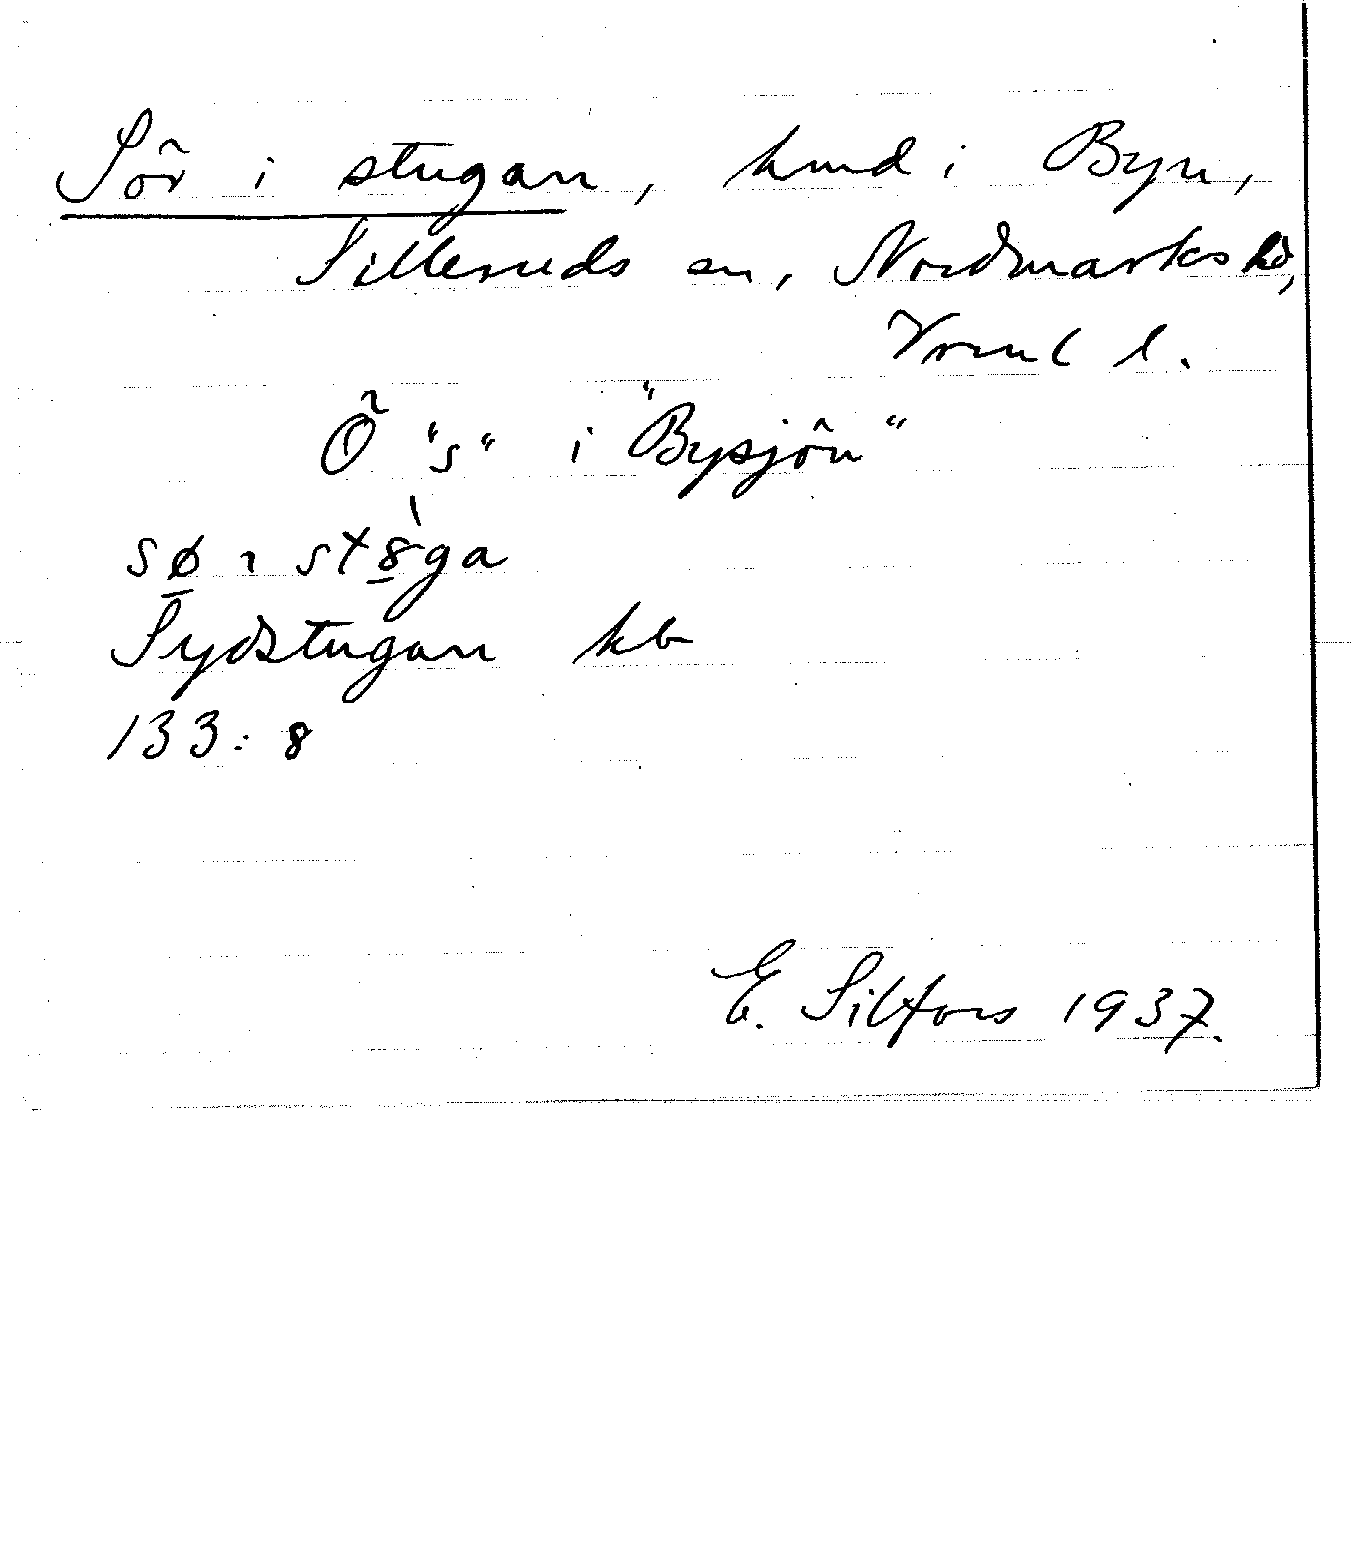 Sör i stugan, hmd i Byn,
Silleruds sn, Nordmarks hd,
Vrml l.
Ö "s" i "Bysjön"
sø ı st8̀ga
Sydstugan kb
133:8
E. Silfors 1937.